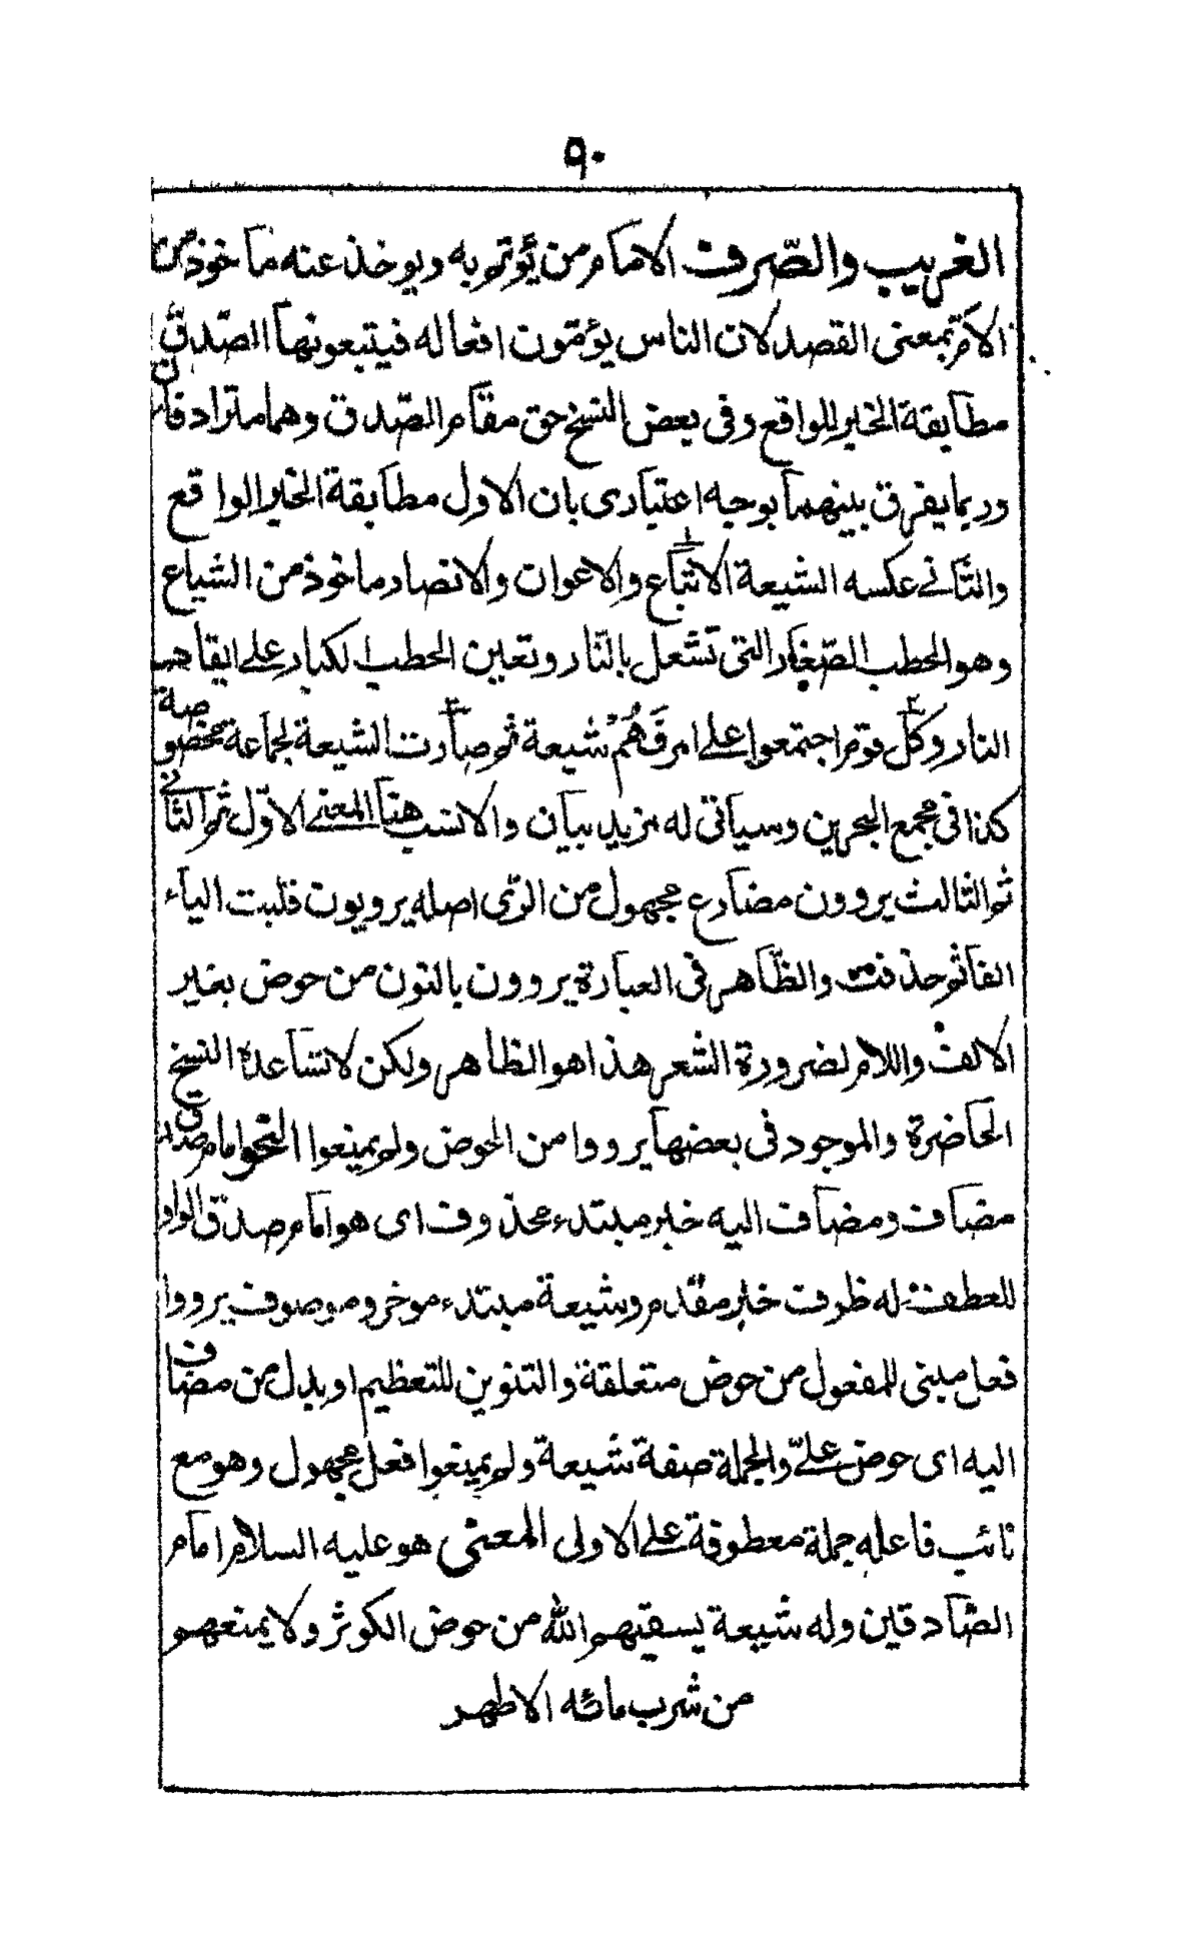 ٩٠
الغريب والصّرف الامام من يؤتم به ويوخذ عنه ماخوذ من
الامّ بمعنى القصد لان الناس يؤمّون افعاله فيتبعونها الصّدق
مطابقة الخبر للواقع وفى بعض النسخ حق مقام الصّدق وهما مترادفان
وربما يفرق بينهما بوجه اعتبارى بان الاول مطابقة الخبر الواقع
والثانى عكسه الشيعة الاتباع والاعوان والانصار ماخوذ من الشياع
وهو الحطب الصّغار التى تشعل بالنّار وتعين الحطب الكبار على ايقاد
النار وكلّ قوم اجتمعوا على امر فَهُمْ شيعة ثم صارت الشيعة لجماعة مخصوصة
كذا فى مجمع البحرين وسياتى له مزيد بيان والانسب هنا المعنى الاوّل ثم الثانى
ثم الثالث يروون مضارع مجهول من الرّى اصله يرويون قلبت الياء
الفا ثم حذفت والظّاهر فى العبارة يروون بالنون من حوض بغير
الالف واللام لضرورة الشعر هذا هو الظاهر ولكن لا تساعده النسخ
الحاضرة والموجود فى بعضها يرووا من الحوض ولم يمنعوا النحو امام صدق
مضاف ومضاف اليه خبر مبتدء محذوف اى هو امام صدق الواو
للعطف له ظرف خبر مقدم وشيعة مبتدء موخر وموصوف يرووا
فعل مبنى للمفعول من حوض متعلقة والتنوين للتعظيم او بدل من مضاف
اليه اى حوض علىّ والجملة صفة شيعة ولم يمنعوا فعل مجهول وهو مع
نائب فاعله جملة معطوفة على الاولى المعنى هو عليه السلام امام
الصّادقين وله شيعة يسقيهم الله من حوض الكوثر ولا يمنعهم
من شرب مائه الاطهر